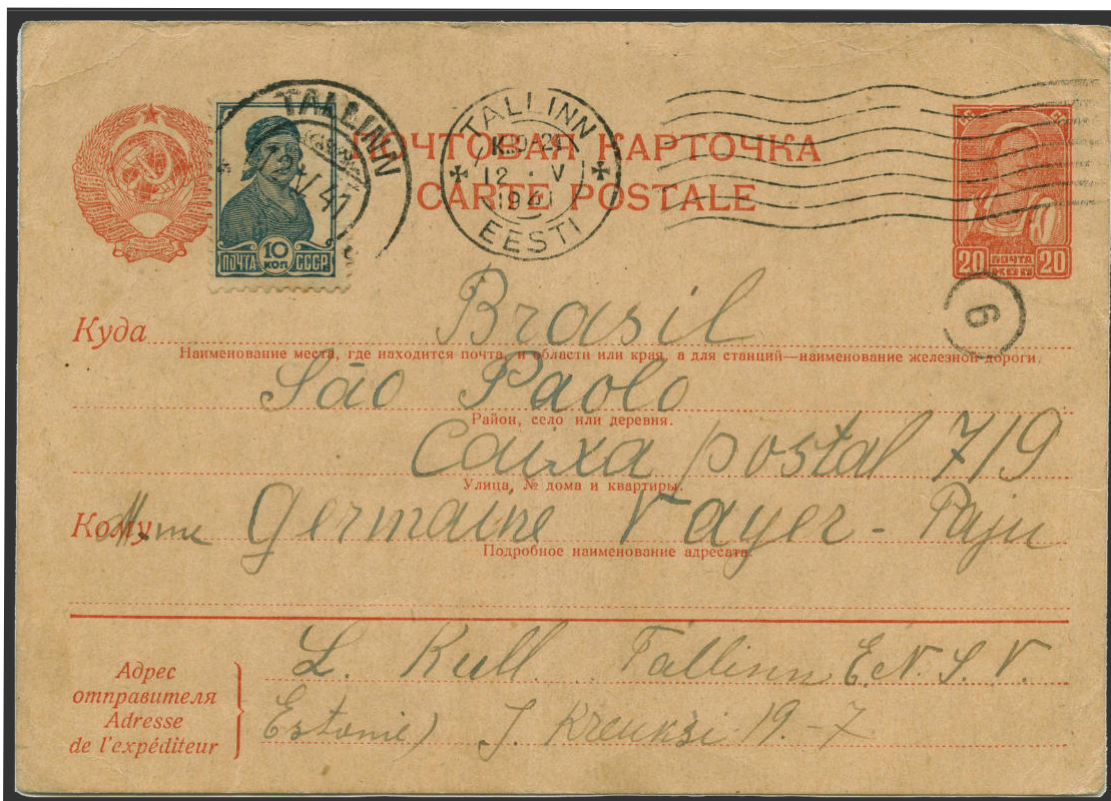 TALLINN
12 V 41
ПОЧТА 10 КОП СССР
TALLINN
12 · V
1941
EESTI
ПОЧТОВАЯ КАРТОЧКА
CARTE POSTALE
20 ПОЧТА 20
6
Куда Brasil
Наименование места, где находится почта, и области или края, а для станций—наименование железной дороги.
São Paolo
Район, село или деревня.
Caixa postal 719
Улица, № дома и квартиры.
Кому Mme Germaine Vayer - Paju
Подробное наименование адресата.
Адрес
отправителя
Adresse
de l'expéditeur
L. Kull Tallinn E.N.S.V.
Estonie) J. Kreuksi 19.-7